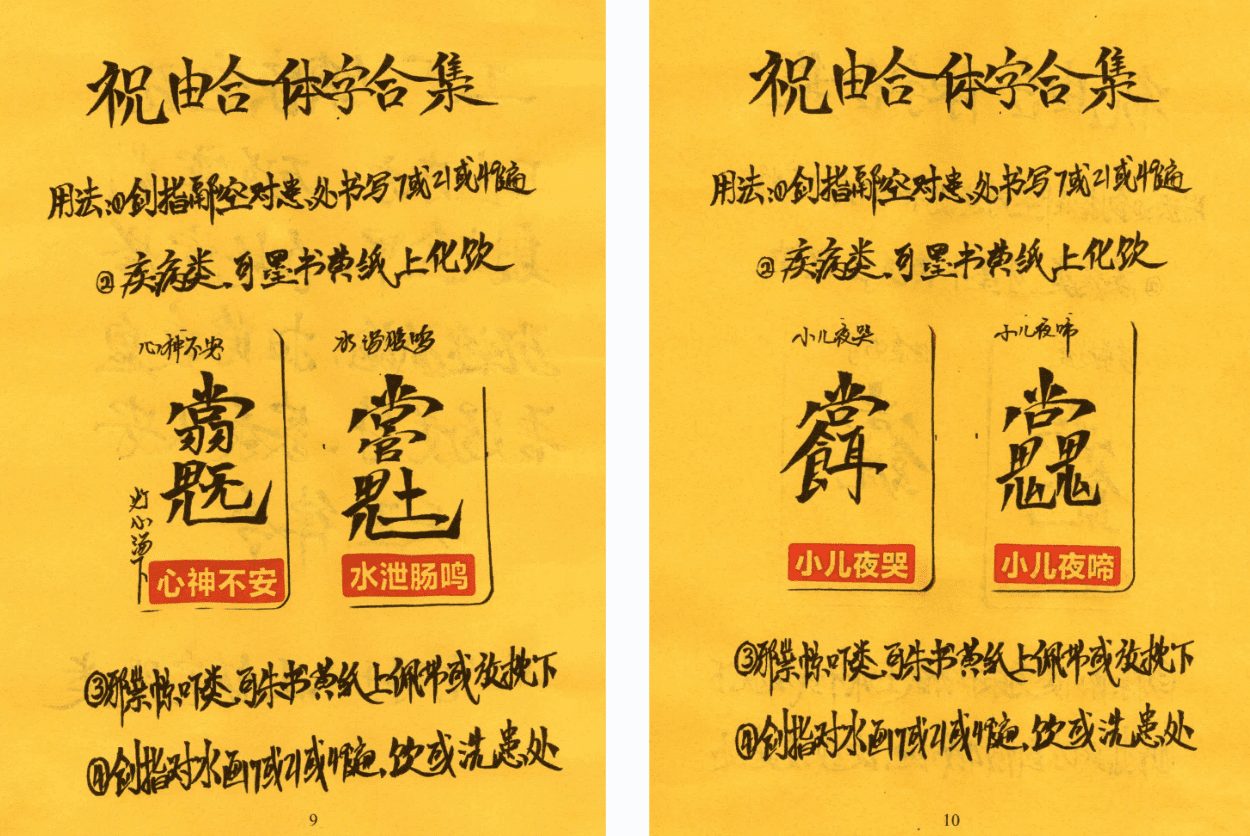 祝由合体字合集
用法:①剑指虚空对患处书写7或21或49遍
②疾病类,可墨书黄纸上化饮
心神不安
水泄肠鸣
灯心汤下
心神不安
水泄肠鸣
③邪祟惊吓类,可朱书黄纸上佩带或放枕下
④剑指对水画7或21或49遍,饮或洗患处
9
祝由合体字合集
用法:①剑指虚空对患处书写7或21或49遍
②疾病类,可墨书黄纸上化饮
小儿夜哭
小儿夜啼
小儿夜哭
小儿夜啼
③邪祟惊吓类,可朱书黄纸上佩带或放枕下
④剑指对水画7或21或49遍,饮或洗患处
10